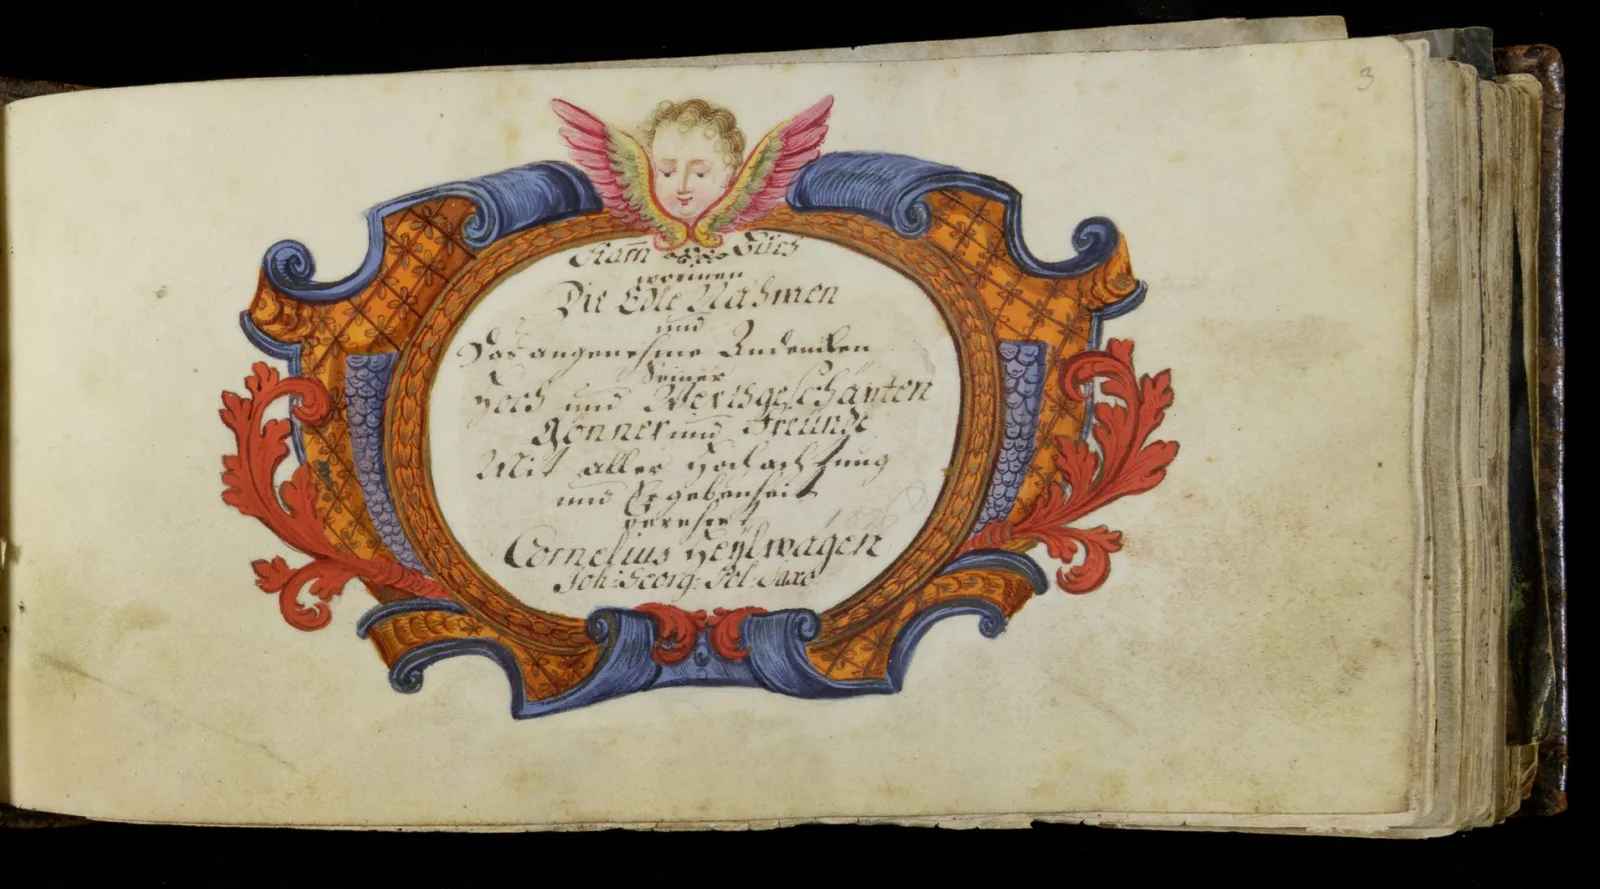 3
Stam̅ Buch
worinnen
Die Edle Nahmen
und
Das angenehme Andencken
Seiner
Hoch und Werthgeschäzten
Gönner und Freunde
Mit aller Hochachtung
und Ergebenheit
verehret
Cornelius Heÿlwagen
Joh: Georg: Pol: Saxo